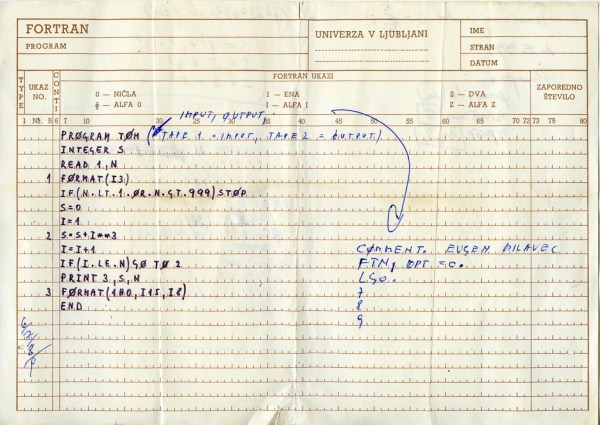 FORTRAN
PROGRAM
UNIVERZA V LJUBLJANI
IME
STRAN
DATUM
TYPE
UKAZ NO.
CONTI
FORTRAN UKAZI
0 — NIČLA 1 — ENA 2 — DVA
Ø — ALFA 0 I — ALFA I Z — ALFA Z
ZAPOREDNO ŠTEVILO
1 Nr. 5 6 7 10 15 20 25 30 35 40 45 50 55 60 65 70 72 73 80
INPUT, OUTPUT,
PRØGRAM TØM (TAPE 1 = INPUT, TAPE 2 = ØUTPUT)
INTEGER S
READ 1, N
1 FØRMAT(I3)
IF(N.LT.1.ØR.N.GT.999)STØP
S=0
I=1
2 S=S+I**3
I=I+1
IF(I.LE.N)GØ TØ 2
PRINT 3,S,N
3 FØRMAT(1H0,I15,I8)
END
CØMMENT. EUGEN MLAVEC
FTN, OPT=0.
LGO.
7
8
9